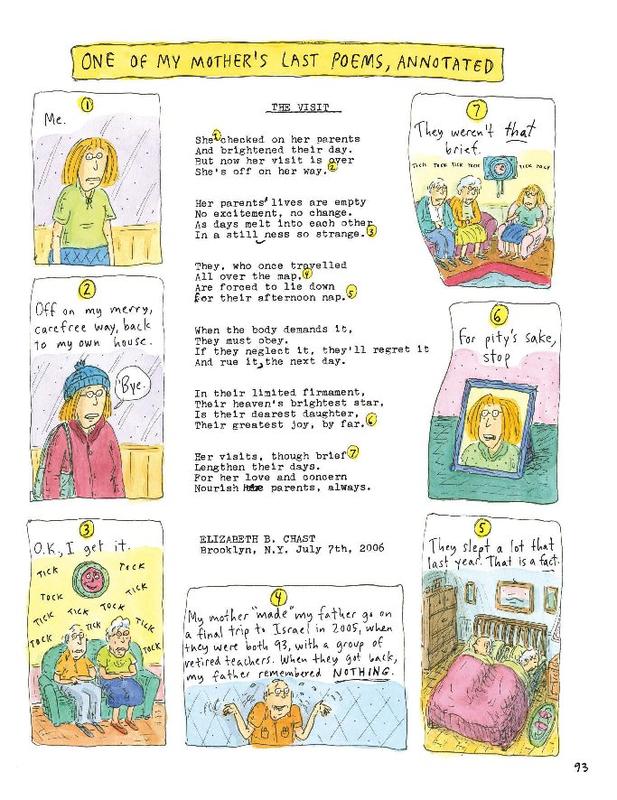 ONE OF MY MOTHER'S LAST POEMS, ANNOTATED
1
Me.
2
Off on my merry,
carefree way, back
to my own house.
'Bye.
3
O.K., I get it.
TICK
TOCK
TOCK
TICK
TICK
TICK
TOCK
TOCK
TICK
TOCK
THE VISIT
She 1 checked on her parents
And brightened their day.
But now her visit is over
She's off on her way. 2
Her parents' lives are empty
No excitement, no change.
As days melt into each other
In a still ness so strange. 3
They, who once travelled
All over the map, 4
Are forced to lie down
for their afternoon nap. 5
When the body demands it,
They must obey.
If they neglect it, they'll regret it
And rue it, the next day.
In their limited firmament,
Their heaven's brightest star,
Is their dearest daughter,
Their greatest joy, by far. 6
Her visits, though brief 7
Lengthen their days.
For her love and concern
Nourish parents, always.
ELIZABETH B. CHAST
Brooklyn, N.Y. July 7th, 2006
4
My mother "made" my father go on
a final trip to Israel in 2005, when
they were both 93, with a group of
retired teachers. When they got back,
my father remembered NOTHING.
5
They slept a lot that
last year. That is a fact.
6
For pity's sake,
stop
7
They weren't that
brief.
TICK TOCK TICK TOCK TICK TOCK
93